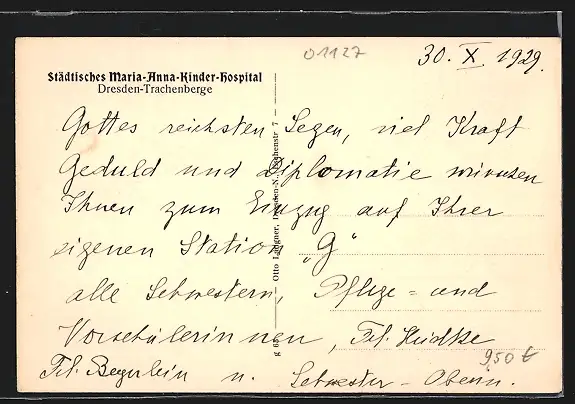 01127
30. X. 1929.
Städtisches Maria-Anna-Kinder-Hospital
Dresden-Trachenberge
Gottes reichsten Segen, viel Kraft
Geduld und Diplomatie wünschen
Ihnen zum Einzug auf Ihrer
eigenen Station „G“
alle Schwestern, Pflege- und
Vorschülerinnen, Frl.
9,50 €
Frl. Beyerlein u. Schwester-Oberin.
Otto Dresden-N. 7